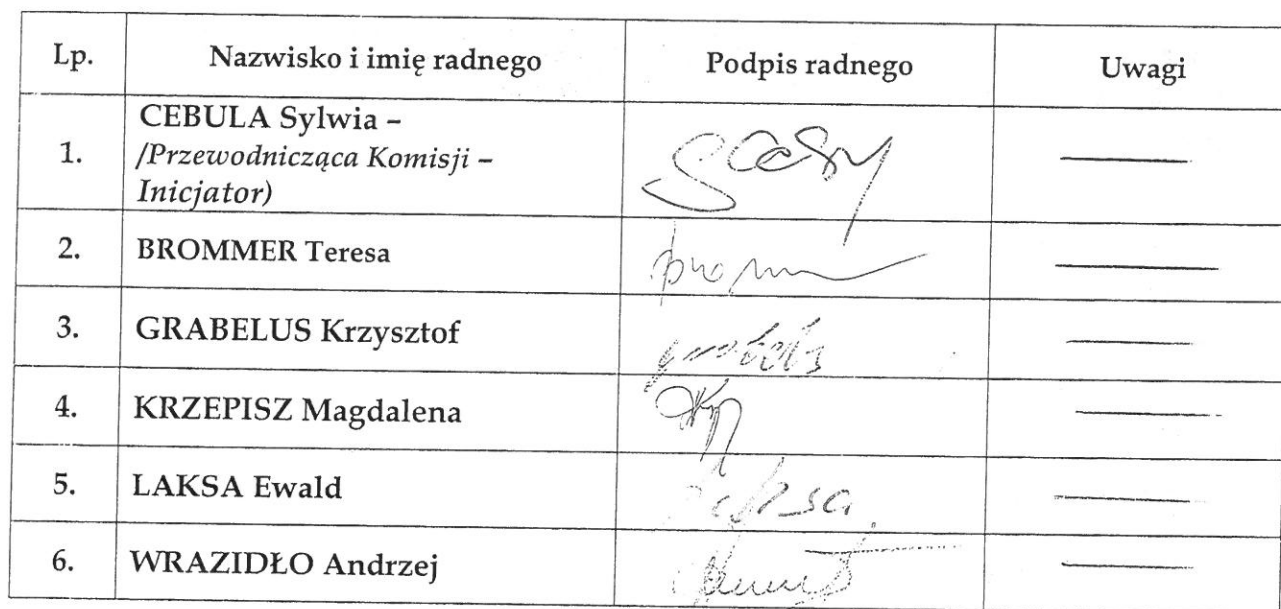 Lp. Nazwisko i imię radnego Podpis radnego Uwagi
CEBULA Sylwia –
1. /Przewodnicząca Komisji –
Inicjator)
2. BROMMER Teresa
3. GRABELUS Krzysztof
4. KRZEPISZ Magdalena
5. LAKSA Ewald
6. WRAZIDŁO Andrzej